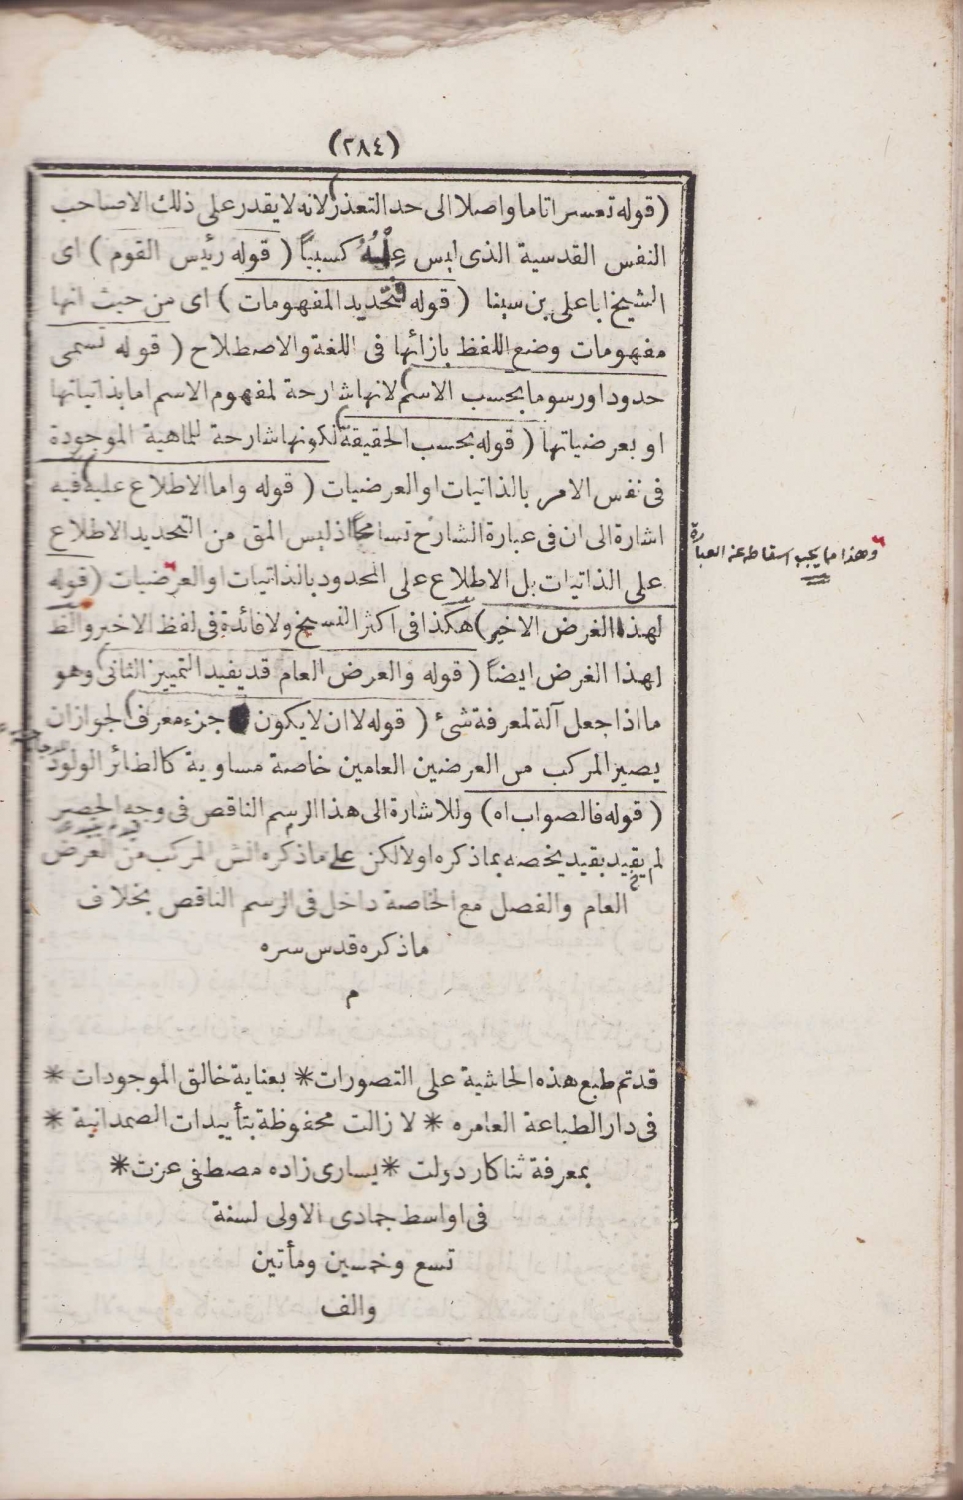 (٢٨٤)
(قوله تعسرا تاما واصلا الى حد التعذر) لانه لا يقدر على ذلك الا صاحب
النفس القدسية الذى ليس علمه كسبياً (قوله رئيس القوم) اى
الشيخ ابا على بن سينا (قوله فتحديد المفهومات) اى من حيث انها
مفهومات وضع اللفظ بازائها فى اللغة والاصطلاح (قوله تسمى
حدودا ورسوما بحسب الاسم) لانها شارحة لمفهوم الاسم اما بذاتياتها
او بعرضياتها (قوله بحسب الحقيقة) لكونها شارحة للماهية الموجودة
فى نفس الامر بالذاتيات او العرضيات (قوله واما الاطلاع عليه) فيه
اشارة الى ان فى عبارة الشارح تسامحاً اذ ليس المق من التحديد الاطلاع
وهذا مما يجب اسقاطه عن العبارة
على الذاتيات بل الاطلاع على المحدود بالذاتيات او العرضيات (قوله
لهذا الغرض الاخير) هكذا فى اكثر النسخ ولا فائدة فى لفظ الاخير والظ
لهذا الغرض ايضاً (قوله والعرض العام قد يفيد التمييز الثانى) وهو
ما اذا جعل آلة لمعرفة شئ (قوله لا ان لا يكون جزء معرف) لجواز ان
يصير المركب من العرضين العامين خاصة مساوية كالطائر الولود
(قوله فالصواب اه) وللاشارة الى هذا الرسم الناقص فى وجه الحصر
لم يقيد بقيد يخصه بما ذكره اولا لكن على ماذكره الش المركب من العرض
العام والفصل مع الخاصة داخل فى الرسم الناقص بخلاف
ماذكره قدس سره
م
قد تم طبع هذه الحاشية على التصورات * بعناية خالق الموجودات *
فى دار الطباعة العامره * لا زالت محفوظة بتأييدات الصمدانية *
بمعرفة ثناكار دولت * يسارى زاده مصطفى عزت *
فى اواسط جمادى الاولى لسنة
تسع وخمسين ومأتين
والف